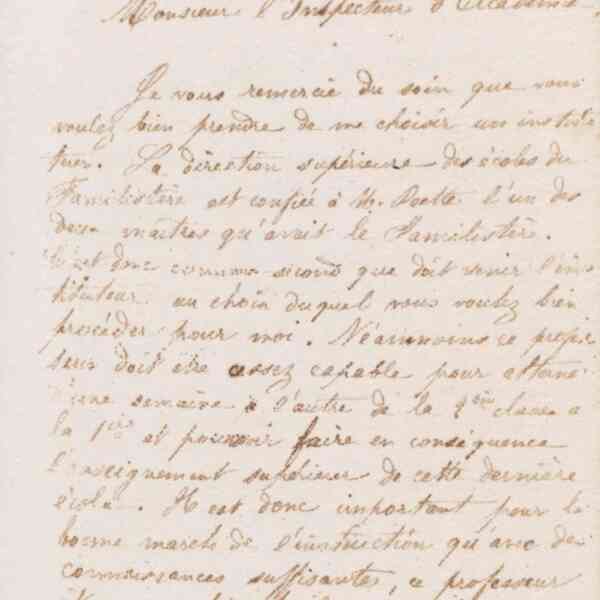 Monsieur l'Inspecteur d'Académie,
Je vous remercie du soin que vous
voulez bien prendre de me choisir un institu
teur. La direction supérieure des écoles du
Familistère est confiée à M. Poette l'un des
deux maîtres qu'avait le Familistère.
C'est donc comme second que doit venir l'ins
tituteur au choix duquel vous voulez bien
procéder pour moi. Néanmoins ce profes
seur doit être assez capable pour alterner
d'une semaine à l'autre de la 2ème classe à
la 1ère et pouvoir faire en conséquence
l'enseignement supérieur de cette dernière
école. Il est donc important pour la
bonne marche de l'instruction qu'avec des
connaissances suffisantes, ce professeur